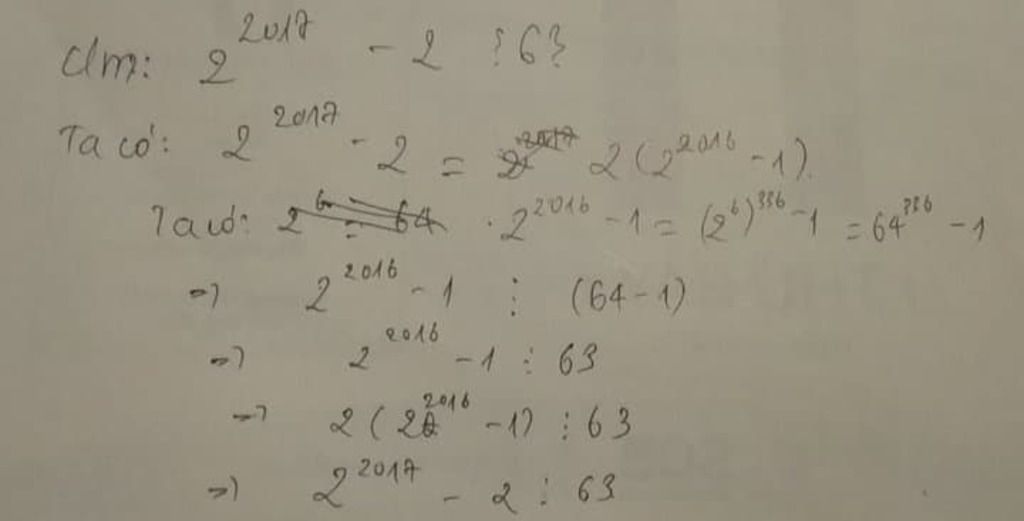 Clm: 2^2017 - 2 ⋮ 63
Ta có: 2^2017 - 2 = 2(2^2016 - 1).
Ta có: 2^6 = 64 . 2^2016 - 1 = (2^6)^336 - 1 = 64^336 - 1
=> 2^2016 - 1 ⋮ (64 - 1)
=> 2^2016 - 1 ⋮ 63
=> 2(2^2016 - 1) ⋮ 63
=> 2^2017 - 2 ⋮ 63